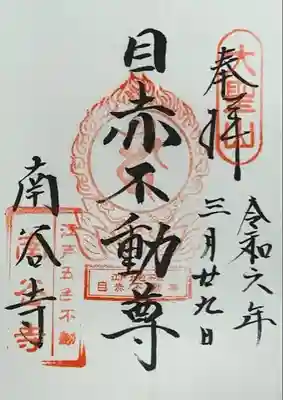 奉拝
大聖山
令和六年
三月廿九日
目赤不動尊
江戸五色不動
南谷寺